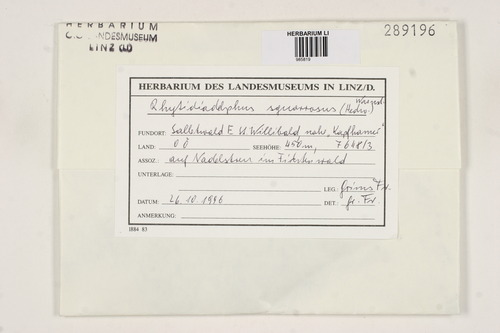 HERBARIUM
O.Ö. LANDESMUSEUM
LINZ O.Ö
HERBARIUM LI
289196
HERBARIUM DES LANDESMUSEUMS IN LINZ/D.
Rhytidiadelphus squarrosus (Hedw.) Warnst.
FUNDORT: Sallet wald E St Willibald, nahe "Kapfhamer"
LAND: OÖ SEEHÖHE: 450m, 7648/3
ASSOZ.: auf Nadelstreu im Fichtenwald
UNTERLAGE:
LEG.: Grims Fr.
DATUM: 26.10.1996 DET.: Gr. Fr.
ANMERKUNG:
1884 83